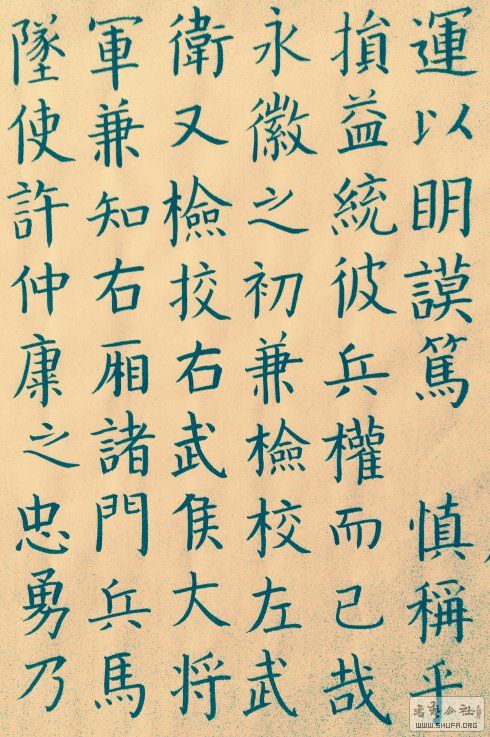 運以明謨篤 慎稱平
損益統彼兵權而已哉
永徽之初兼檢校左武
衛又檢挍右武侯大将
軍兼知右厢諸門兵馬
墜使許仲康之忠勇乃
WWW.SHUFA.ORG